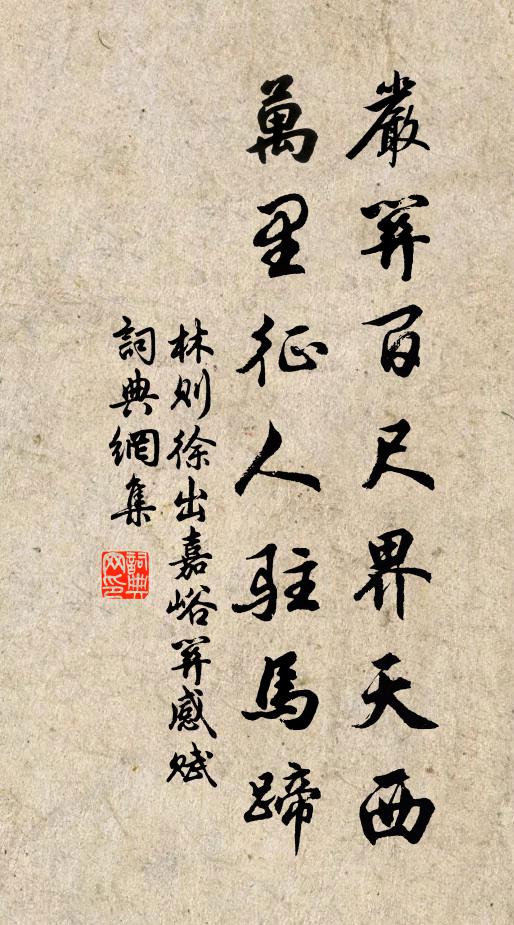 嚴關百尺界天西
萬里征人駐馬蹄
林則徐出嘉峪關感賦
詞典網集
詞典網印